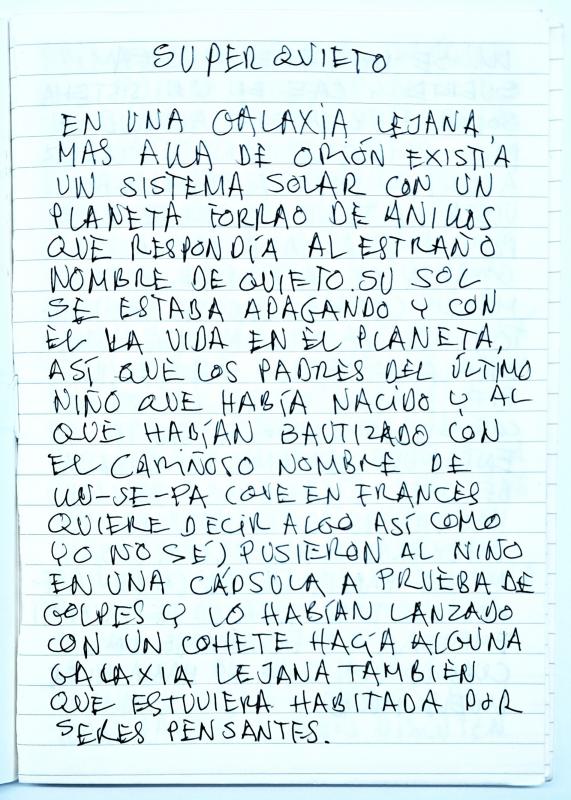 SUPER QUIETO
EN UNA GALAXIA LEJANA,
MAS ALLA DE ORIÓN EXISTIA
UN SISTEMA SOLAR CON UN
PLANETA FORRAO DE ANILLOS
QUE RESPONDÍA AL ESTRAÑO
NOMBRE DE QUIETO. SU SOL
SE ESTABA APAGANDO Y CON
ÉL LA VIDA EN EL PLANETA,
ASÍ QUE LOS PADRES DEL ÚLTIMO
NIÑO QUE HABÍA NACIDO Y AL
QUE HABÍAN BAUTIZADO CON
EL CARIÑOSO NOMBRE DE
UU-SE-PA (QUE EN FRANCÉS
QUIERE DECIR ALGO ASÍ COMO
YO NO SÉ) PUSIERON AL NIÑO
EN UNA CÁPSULA A PRUEBA DE
GOLPES Y LO HABÍAN LANZADO
CON UN COHETE HACÍA ALGUNA
GALAXIA LEJANA TAMBIÉN
QUE ESTUVIERA HABITADA POR
SERES PENSANTES.